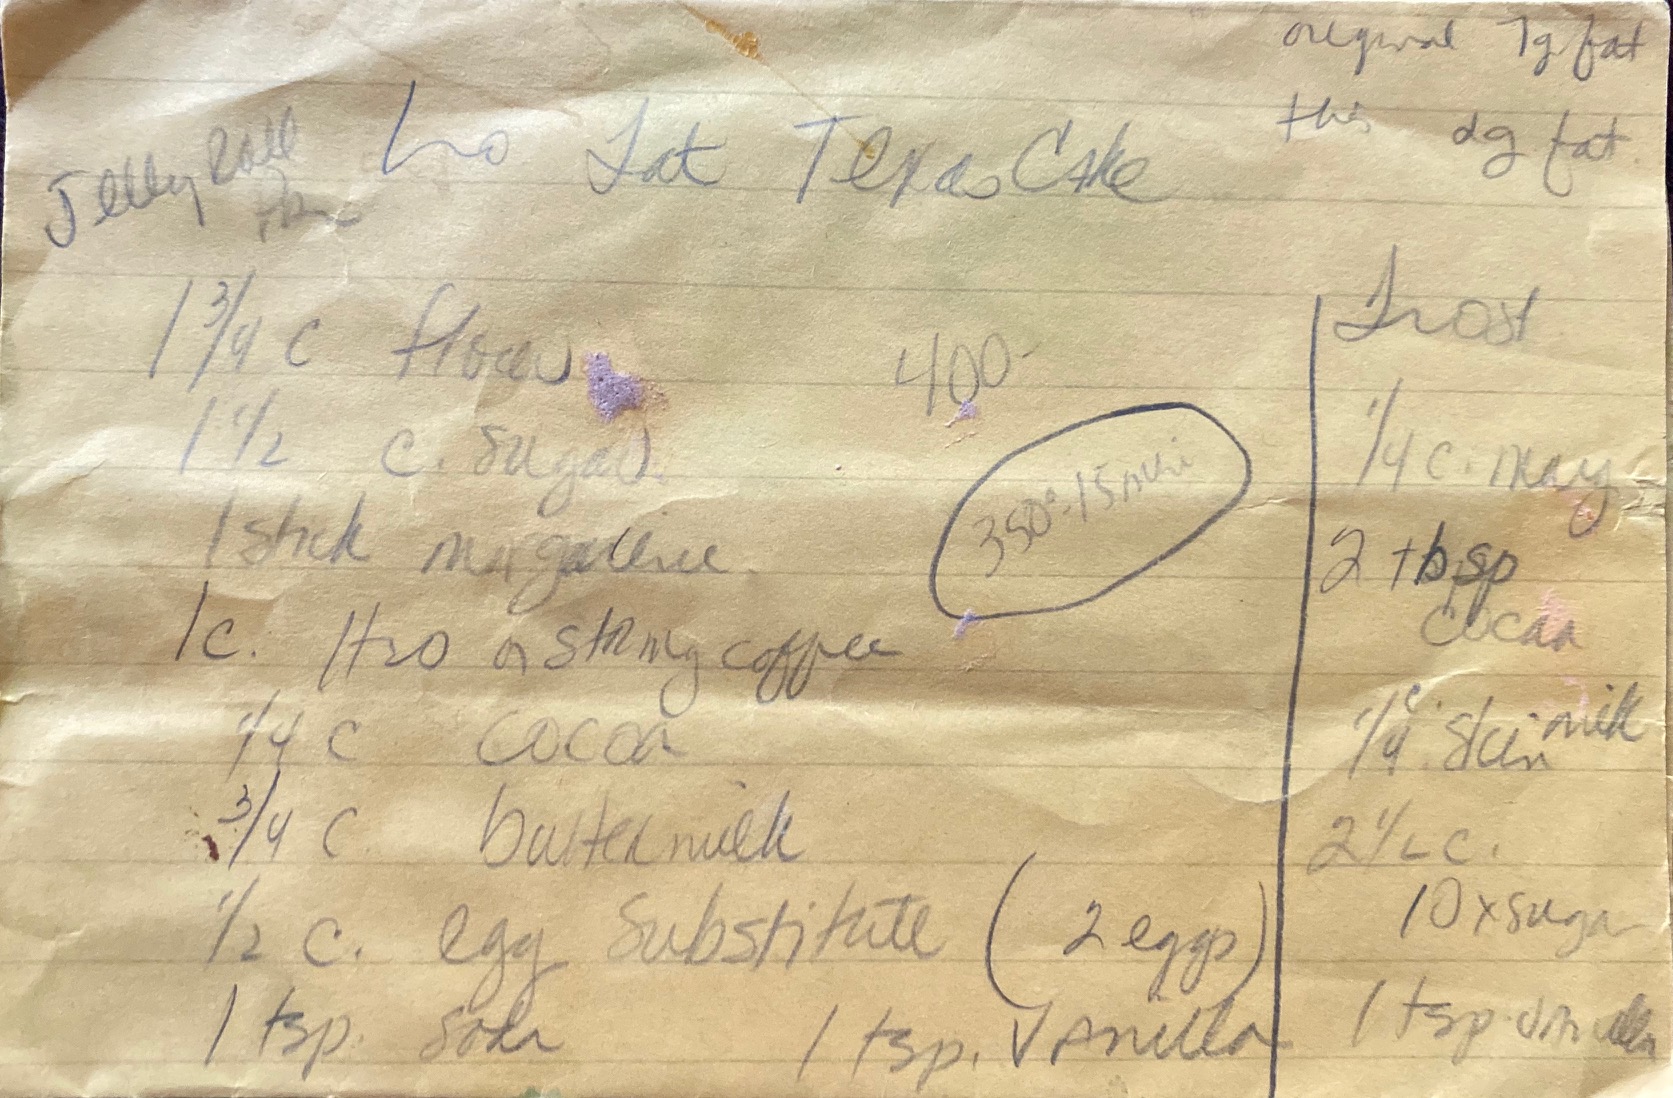 original 7g fat
this 2g fat.
Jelly Roll
Pan
Lo Fat Texas Cake
1 3/4 c flour
400-
1 1/2 c. sugar.
350°-15 min
1 stick margarine.
1c. H2O or strong coffee
1/4 c cocoa
3/4 c buttermilk
1/2 c. egg substitute (2 eggs)
1 tsp. soda 1 tsp. vanilla
Frost
1/4 c. marg
2 tbsp
cocoa
1/4 c. skim milk
2 1/2 c.
10x sugar
1 tsp. vanilla